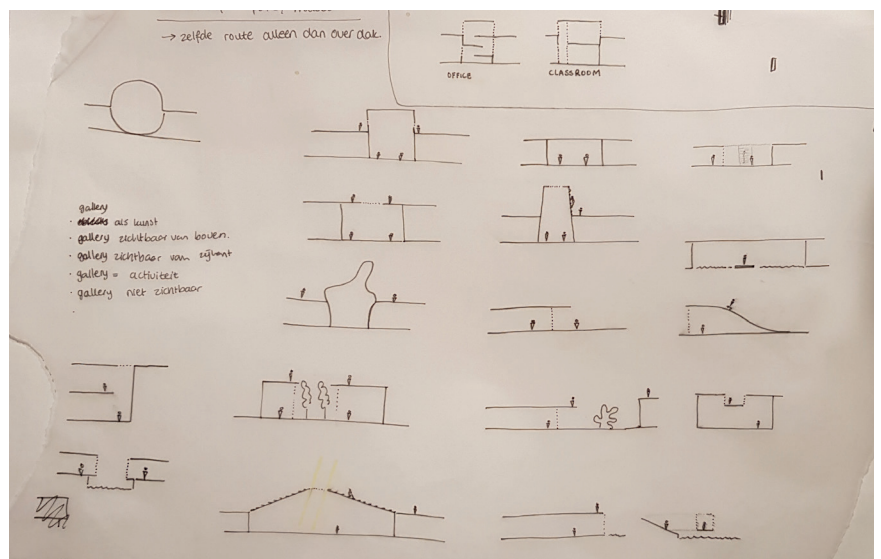 → zelfde route alleen dan over dak.
OFFICE
CLASSROOM
gallery
als kunst
· gallery zichtbaar van boven.
· gallery zichtbaar vam zijkant
· gallery = activiteit
· gallery niet zichtbaar